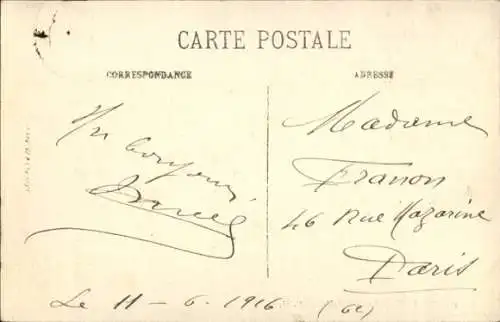 CARTE POSTALE
CORRESPONDANCE
ADRESSE
Un bonjour
Madame
Franon
46 Rue Mazarine
Paris
Le 11 - 6 - 1916 (6e)